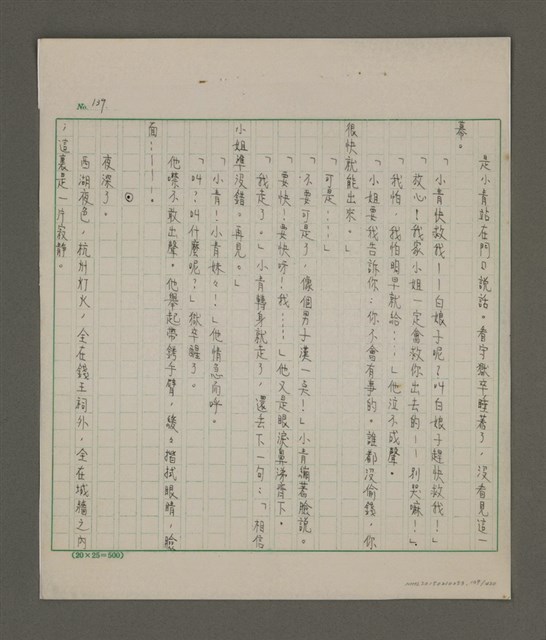 No. 137
是小青站在門口說話。看守獄卒睡著了，沒看見這一
幕。
「小青快救我！——白娘子呢？叫白娘子趕快救我！」
「放心！我家小姐一定會救你出去的——別哭嘛！」
「我怕，我怕明早就給……」他泣不成聲。
「小姐要我告訴你：你不會有事的。誰都沒偷錢，你
很快就能出來。」
「可是……」
「不要可是了，像個男子漢一點！」小青繃著臉說。
「要快！要快呀！我……」他又是眼淚鼻涕齊下。
「我走了。」小青轉身就走了，還丟下一句：「相信
小姐準沒錯。再見。」
「小青！小青妹々！」他情急而呼。
「叫？叫什麼呢？」獄卒醒了。
他嚇不敢出聲。他舉起帶銬手臂，緩々揩拭眼睛，臉
面……。
⊙
夜深了。
西湖夜色，杭州灯火，全在錢王祠外，全在城牆之內
；這裏是一片寂靜。
(20×25=500)